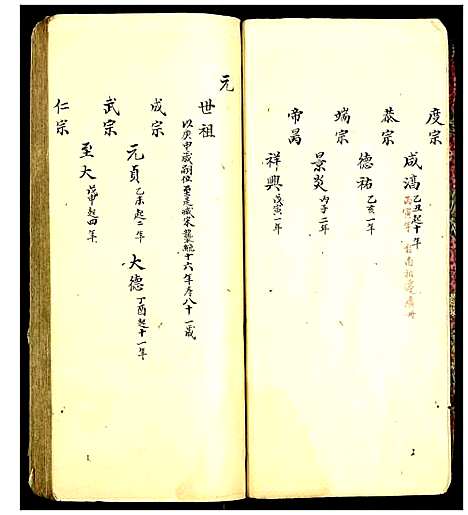 度宗
咸淳 乙丑起十年
恭宗
德祐 乙亥一年
端宗
景炎 丙子二年
帝昺
祥興 戊寅一年
2
元
世祖
以庚申歲嗣位至是滅宋統十六年壽八十一歲
成宗
元貞 乙未起二年 大德 丁酉起十一年
武宗
至大 戊申起四年
仁宗
1